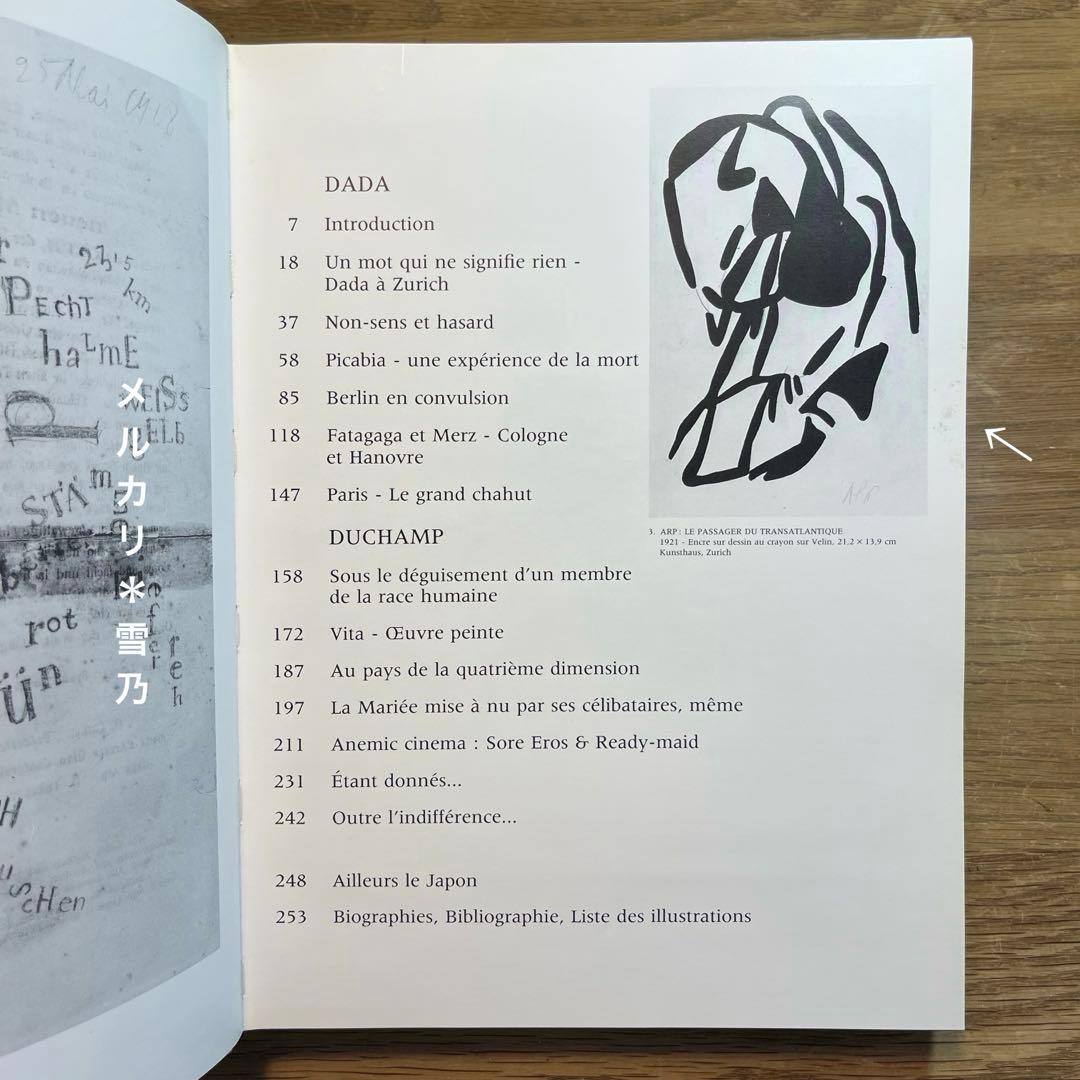 25 Mai 1918
23'5
km
PEcht
haLmE
WEISS
ELb
STAm
rot
ün
efer
reh
H
scHen
メルカリ＊雪乃
DADA
7 Introduction
18 Un mot qui ne signifie rien -
Dada à Zurich
37 Non-sens et hasard
58 Picabia - une expérience de la mort
85 Berlin en convulsion
118 Fatagaga et Merz - Cologne
et Hanovre
147 Paris - Le grand chahut
DUCHAMP
158 Sous le déguisement d'un membre
de la race humaine
172 Vita - Œuvre peinte
187 Au pays de la quatrième dimension
197 La Mariée mise à nu par ses célibataires, même
211 Anemic cinema : Sore Eros & Ready-maid
231 Étant donnés...
242 Outre l'indifférence...
248 Ailleurs le Japon
253 Biographies, Bibliographie, Liste des illustrations
ARP
3. ARP : LE PASSAGER DU TRANSATLANTIQUE
1921 - Encre sur dessin au crayon sur Velin, 21,2 × 13,9 cm
Kunsthaus, Zurich